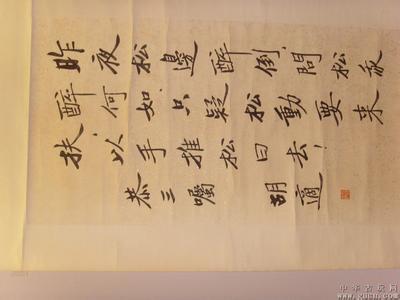 昨夜松邊醉倒問松我
醉何如只疑松動要來
扶以手推松曰去!
恭三囑 胡適
中华古玩网
www.gucn.com